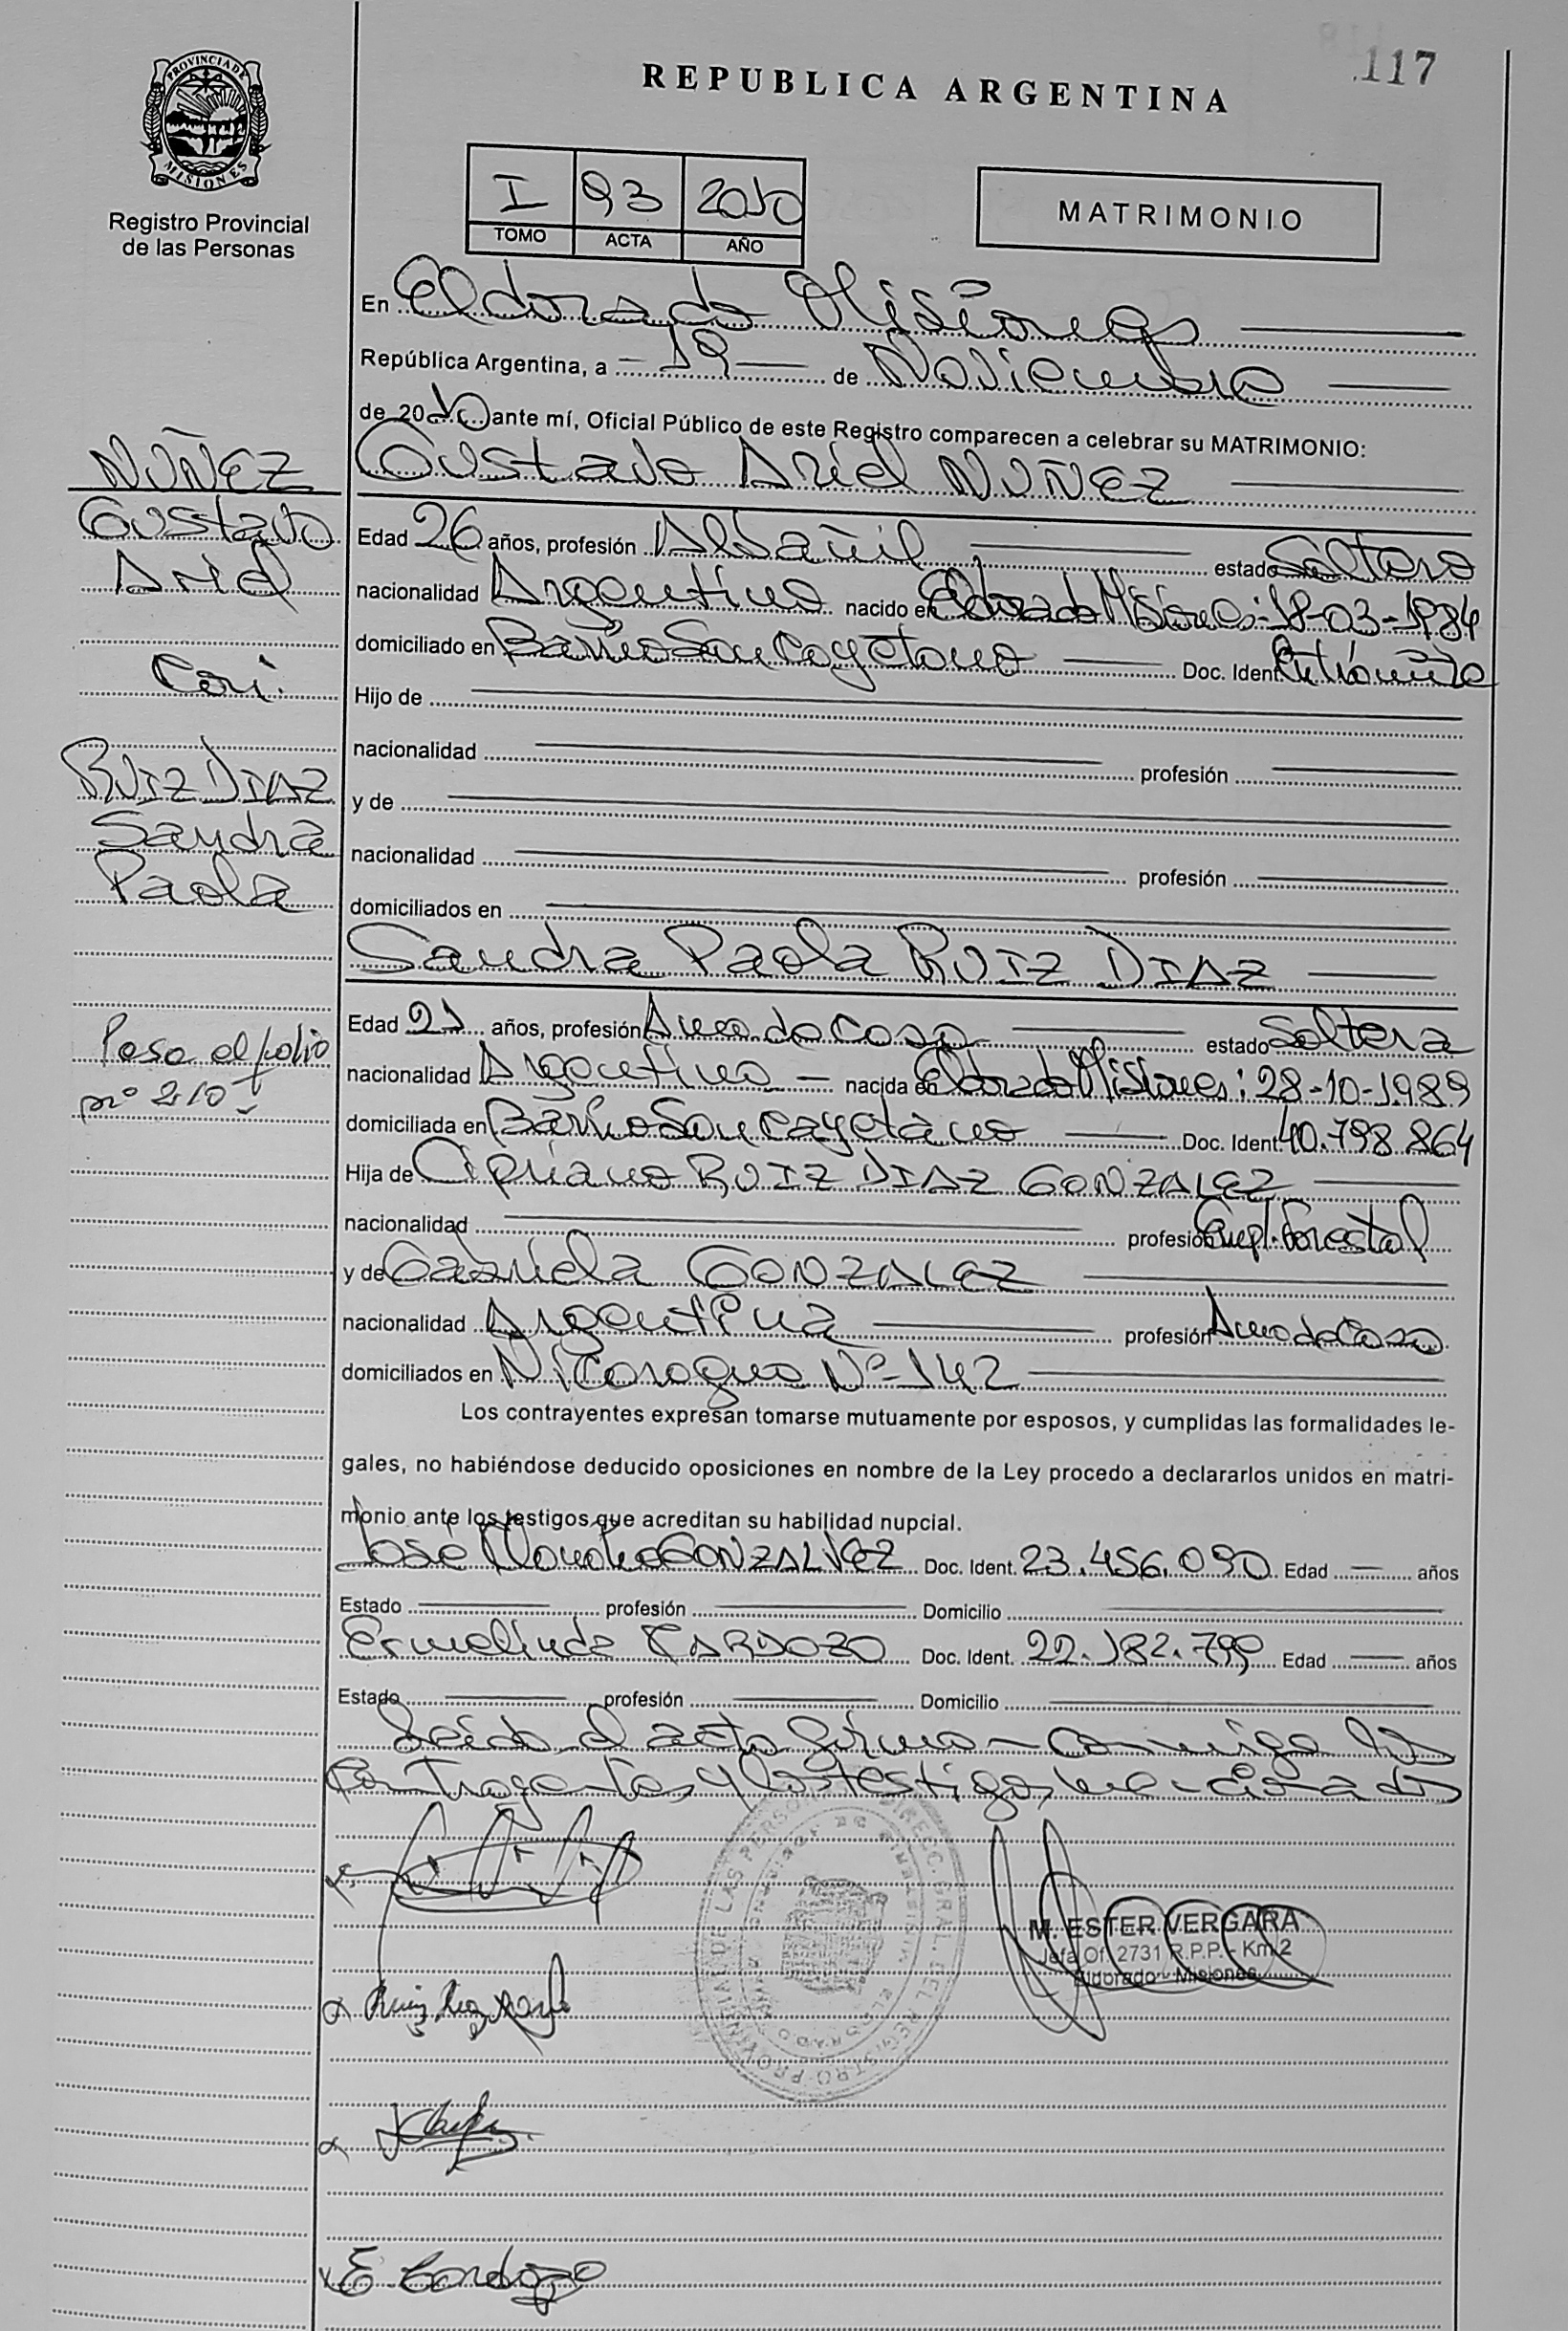 117
REPUBLICA ARGENTINA
PROVINCIA DE
MISIONES
Registro Provincial
de las Personas
I 93 2010
TOMO ACTA AÑO
MATRIMONIO
En Eldorado Misiones
República Argentina, a 19 de Noviembre
de 2010 ante mí, Oficial Público de este Registro comparecen a celebrar su MATRIMONIO:
Gustavo Ariel NUÑEZ
Edad 26 años, profesión Albañil estado Soltero
nacionalidad Argentino nacido en Eldorado Misiones: 18-03-1984
domiciliado en Barrio San Cayetano Doc. Ident.
Hijo de
nacionalidad profesión
y de
nacionalidad profesión
domiciliados en
Sandra Paola RUIZ DIAZ
Edad 21 años, profesión Ama de casa estado Soltera
nacionalidad Argentina nacida en Eldorado Misiones: 28-10-1989
domiciliada en Barrio San Cayetano Doc. Ident. 40.798.864
Hija de Cipriano RUIZ DIAZ GONZALEZ
nacionalidad profesión Empl. Forestal
y de Gabriela GONZALEZ
nacionalidad Argentina profesión Ama de Casa
domiciliados en Nicaragua Nº 142
Los contrayentes expresan tomarse mutuamente por esposos, y cumplidas las formalidades le-
gales, no habiéndose deducido oposiciones en nombre de la Ley procedo a declararlos unidos en matri-
monio ante los testigos que acreditan su habilidad nupcial.
José GONZALVEZ Doc. Ident. 23.456.090 Edad años
Estado profesión Domicilio
Ermelinda CARDOZO Doc. Ident. 22.182.799 Edad años
Estado profesión Domicilio
Leido el acta firman conmigo los
Contrayentes y los testigos mencionados
M. ESTER VERGARA
Jefa Of. 2731 R.P.P. - Km 2
Eldorado - Misiones
E Cardozo
NUÑEZ
Gustavo
Ariel
Con:
RUIZ DIAZ
Sandra
Paola
Pasa al folio
nº 210